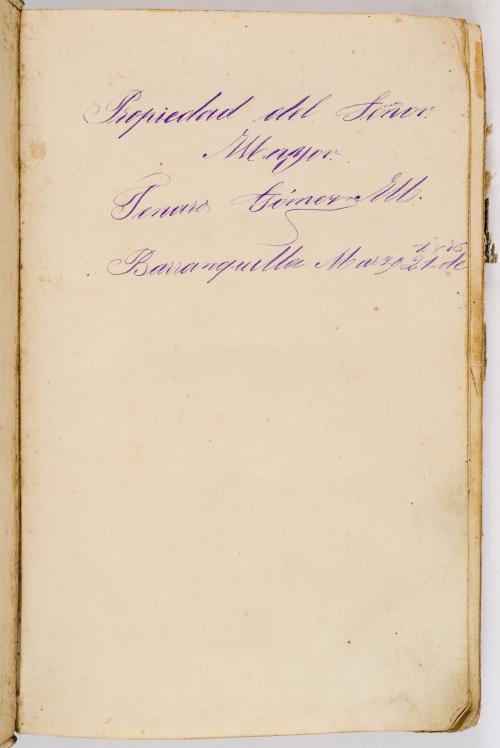 Propiedad del Señor
Mayor
Genaro Gómez M.
Barranquilla Marzo 21 de